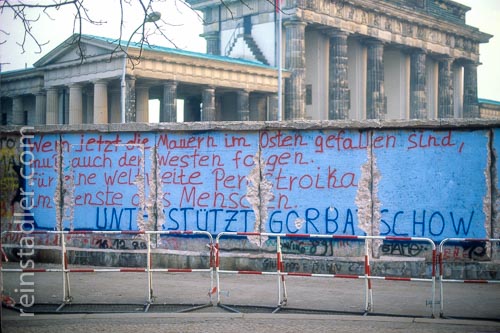 Wenn jetzt die Mauern im Osten gefallen sind,
muß auch der Westen folgen.
für eine weltweite Perestroika
im Dienste des Menschen.
UNTERSTÜTZT GORBATSCHOW
reinstadler.org